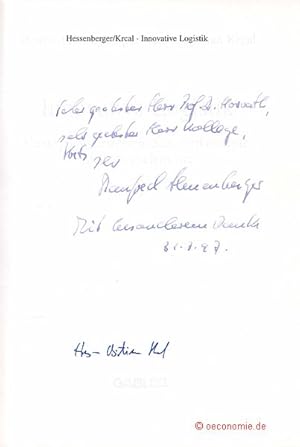 Hessenberger/Krcal · Innovative Logistik
Sehr geehrter Herr Prof. Dr. Horváth,
sehr geehrter Herr Kollege,
stets
Ihr
Manfred Hessenberger
Mit besonderem Dank
Hans-Christian
© oeconomie.de